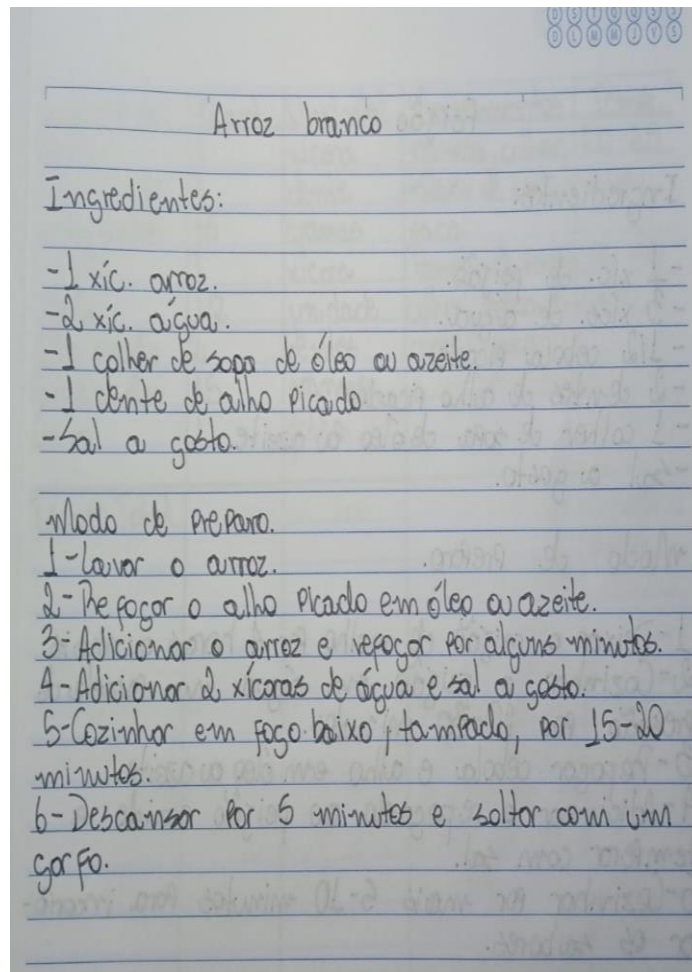 D S T Q Q S S
D L M M J V S
Arroz branco
Ingredientes:
-1 xíc. arroz.
-2 xíc. água.
-1 colher de sopa de óleo ou azeite.
-1 dente de alho picado
-Sal a gosto.
Modo de preparo.
1-Lavar o arroz.
2-Refogar o alho picado em óleo ou azeite.
3-Adicionar o arroz e refogar por alguns minutos.
4-Adicionar 2 xícaras de água e sal a gosto.
5-Cozinhar em fogo baixo, tampado, por 15-20
minutos.
6-Descansar por 5 minutos e soltar com um
garfo.